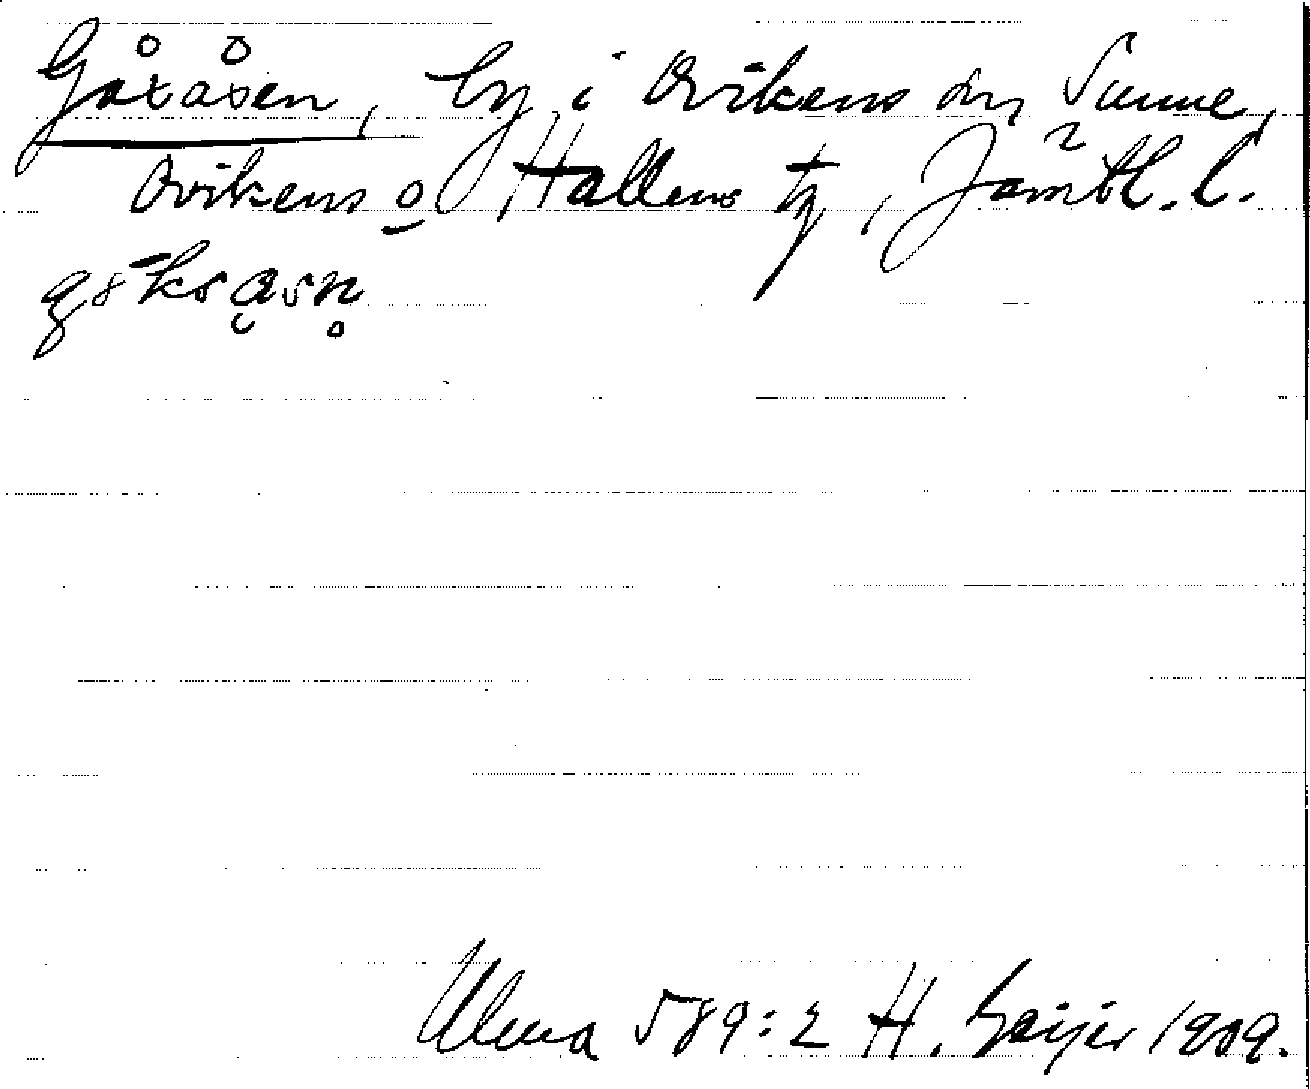 Gåxåsen, by i Ovikens sn, Sunne,
Ovikens o Hallens tg, Jämtl. l.
Ulma 589:2 H. Geijer 1909.